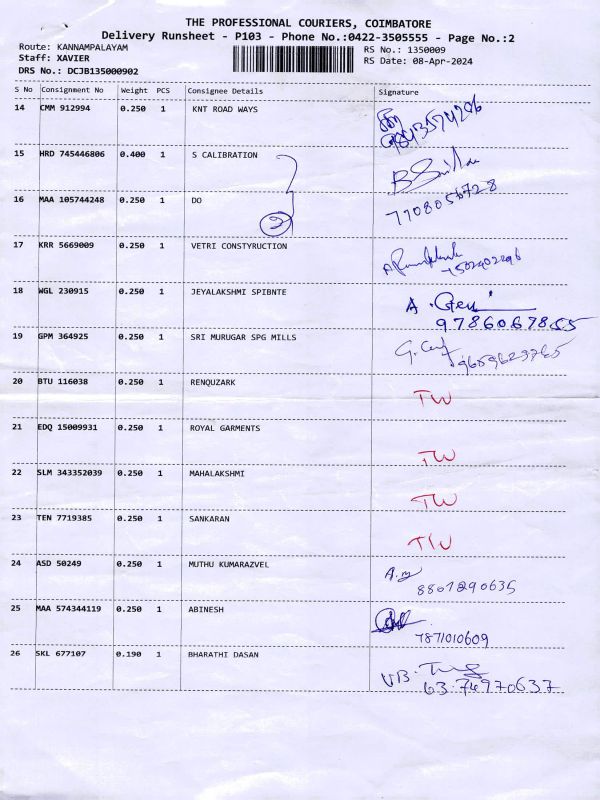 THE PROFESSIONAL COURIERS, COIMBATORE
Delivery Runsheet - P103 - Phone No.:0422-3505555 - Page No.:2
Route: KANNAMPALAYAM RS No.: 1350009
Staff: XAVIER RS Date: 08-Apr-2024
DRS No.: DCJB135000902
S No Consignment No Weight PCS Consignee Details Signature
14 CMM 912994 0.250 1 KNT ROAD WAYS
15 HRD 745446806 0.400 1 S CALIBRATION
16 MAA 105744248 0.250 1 DO 2 7708056728
17 KRR 5669009 0.250 1 VETRI CONSTYRUCTION
18 WGL 230915 0.250 1 JEYALAKSHMI SPIBNTE A.
9786067855
19 GPM 364925 0.250 1 SRI MURUGAR SPG MILLS G. 9659623765
20 BTU 116038 0.250 1 RENQUZARK TW
21 EDQ 15009931 0.250 1 ROYAL GARMENTS TW
22 SLM 343352039 0.250 1 MAHALAKSHMI TW
23 TEN 7719385 0.250 1 SANKARAN TW
24 ASD 50249 0.250 1 MUTHU KUMARAZVEL A.
8807290635
25 MAA 574344119 0.250 1 ABINESH
7871010609
26 SKL 677107 0.190 1 BHARATHI DASAN VB.
63.74970637